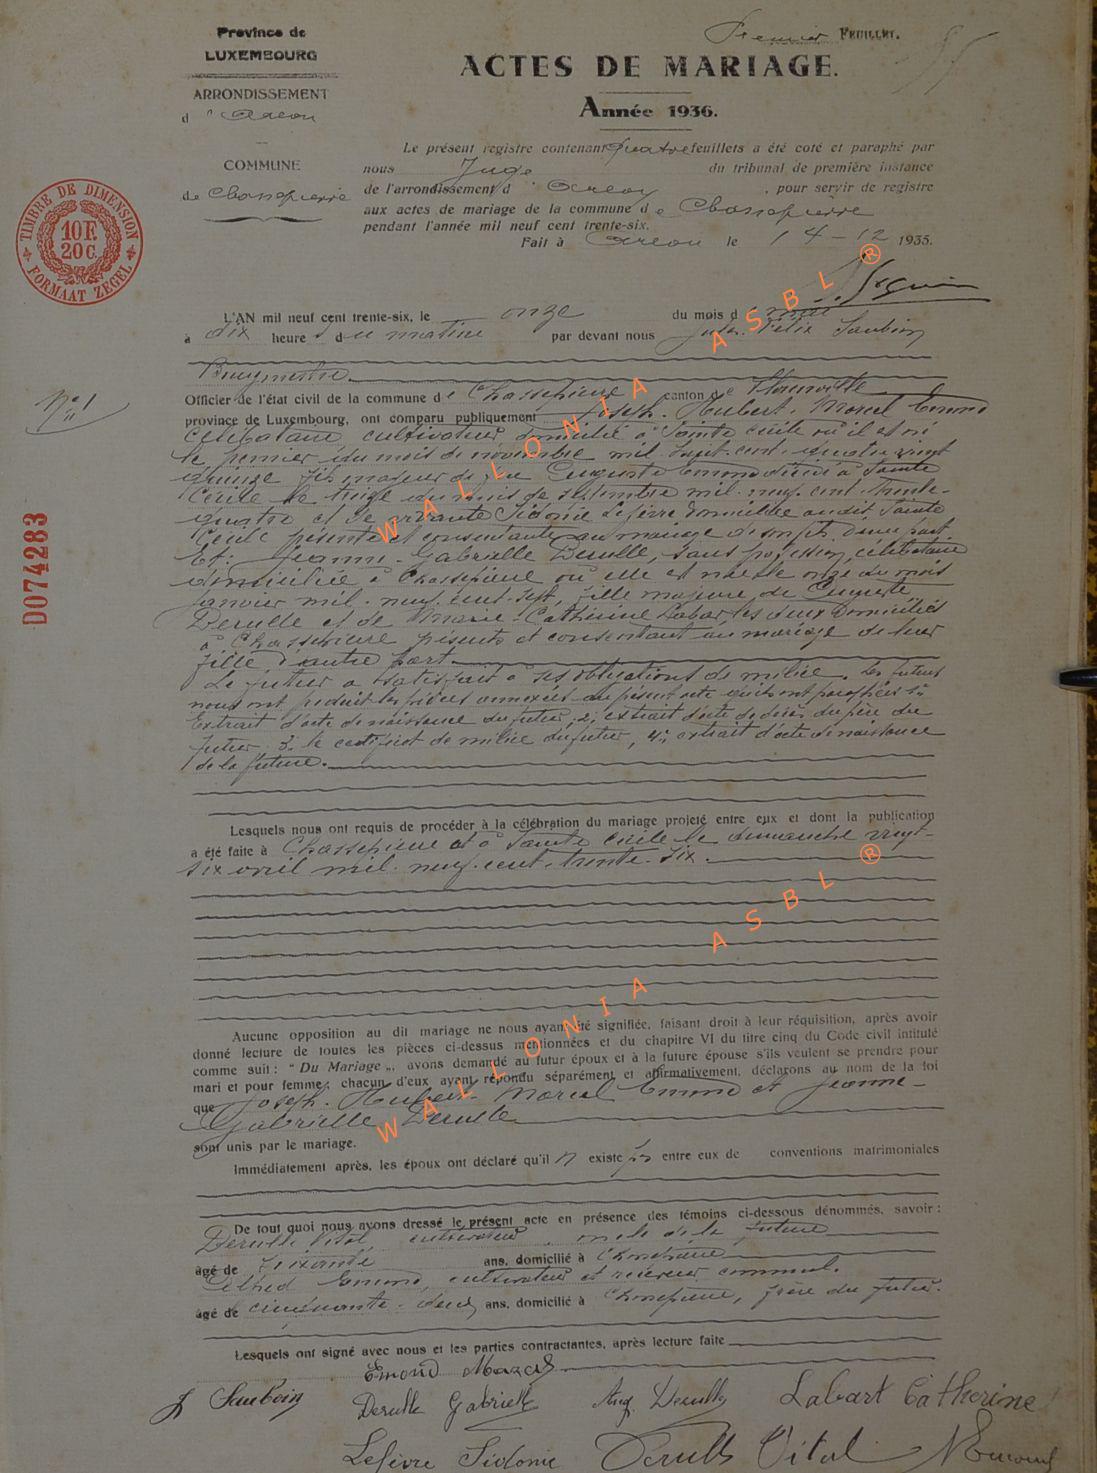 Province de
LUXEMBOURG
Premier FEUILLET.
ACTES DE MARIAGE.
Année 1936.
ARRONDISSEMENT
d'Arlon
COMMUNE
de Chassepierre
Le présent registre contenant quatre feuillets a été coté et paraphé par
nous Juge du tribunal de première instance
de l'arrondissement d'Arlon, pour servir de registre
aux actes de mariage de la commune de Chassepierre
pendant l'année mil neuf cent trente-six.
Fait à Arlon le 14-12 1935.
TIMBRE DE DIMENSION
10 F.
20 C.
FORMAAT ZEGEL
L'AN mil neuf cent trente-six, le onze du mois de mai
à dix heures du matin par devant nous Jules Félix Saubin
Bourgmestre
Officier de l'état civil de la commune de Chassepierre canton de Florenville
N° 1
province de Luxembourg, ont comparu publiquement Joseph. Hubert. Marcel Emond
célibataire cultivateur domicilié à Sainte Cécile où il est né
le premier du mois de novembre mil huit. cent. quatre vingt
quinze fils majeur de feu Auguste Emond décédé à Sainte
Cécile le treize du mois de septembre mil. neuf. cent. trente-
quatre et de vivante Sidonie Lefèvre domiciliée audit Sainte
Cécile présente et consentante au mariage de son fils d'une part
Et: Jeanne. Gabrielle Derulle, sans profession, célibataire
domiciliée à Chassepierre où elle est née le onze du mois
janvier mil. neuf. cent. sept, fille majeure de Auguste
Derulle et de Marie. Catherine Labar, les deux domiciliés
à Chassepierre présents et consentant au mariage de leur
fille d'autre part.
Le futur a satisfait à ses obligations de milice. Les futurs
nous ont produit les pièces annexées au présent acte qu'ils ont paraphées 1:
Extrait d'acte de naissance du futur, 2: extrait d'acte de décès du père du
futur; 3: le certificat de milice du futur, 4: extrait d'acte de naissance
de la future.
D074283
Lesquels nous ont requis de procéder à la célébration du mariage projeté entre eux et dont la publication
a été faite à Chassepierre et à Sainte Cécile le dimanche vingt-
six avril mil. neuf. cent. trente. six.
Aucune opposition au dit mariage ne nous ayant été signifiée, faisant droit à leur réquisition, après avoir
donné lecture de toutes les pièces ci-dessus mentionnées et du chapitre VI du titre cinq du Code civil intitulé
comme suit: "Du Mariage", avons demandé au futur époux et à la future épouse s'ils veulent se prendre pour
mari et pour femme; chacun d'eux ayant répondu séparément et affirmativement, déclarons au nom de la loi
que Joseph. Hubert. Marcel Emond et Jeanne-
Gabrielle Derulle
sont unis par le mariage.
Immédiatement après, les époux ont déclaré qu'il n'existe pas entre eux de conventions matrimoniales
De tout quoi nous avons dressé le présent acte en présence des témoins ci-dessous dénommés, savoir:
Derulle Vital, cultivateur, oncle de la future
âgé de soixante ans, domicilié à Chassepierre
Alfred Emond, cultivateur et receveur communal.
âgé de cinquante-deux ans, domicilié à Chassepierre, frère du futur.
Lesquels ont signé avec nous et les parties contractantes, après lecture faite
Emond Marcel
J Saubin Derulle Gabrielle Aug. Derulle Labart Catherine
Lefèvre Sidonie Derulle Vital A Emond
WALLONIA ASBL ®
WALLONIA ASBL ®